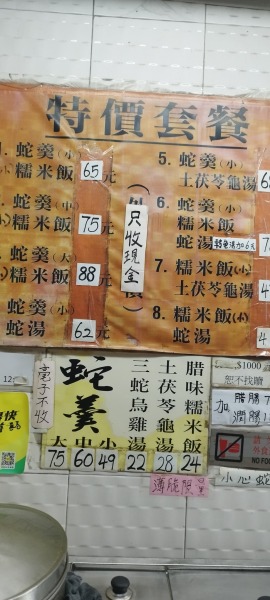 特價套餐
蛇羹(小)
糯米飯 65元
糯米飯 75元
糯米飯 88元
蛇羹(小)
蛇湯 62元
只收現金
5. 蛇羹(小)
土茯苓龜湯
6. 蛇羹(小)
糯米飯
蛇湯 轉龜湯加6元
7. 糯米飯(小)
土茯苓龜湯
8. 糯米飯(小)
蛇湯
毫子不收
蛇羹
大 中 小
75 60 49
三蛇烏雞湯
22
土茯苓龜湯
28
腊味糯米飯
24
$1000
恕不找贖
加
腊腸
潤腸
小心蛇